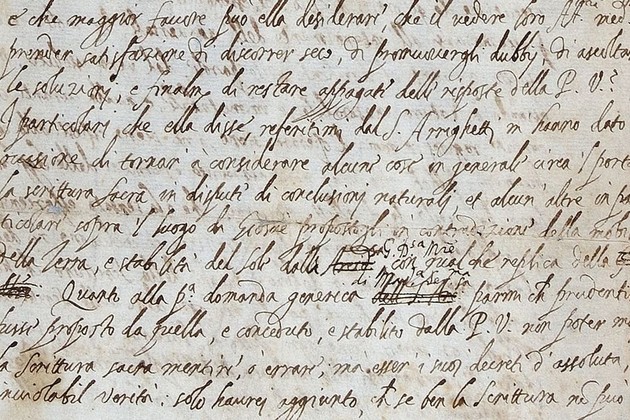 e che maggior favore può ella desiderare, che il vedere loro
prender satisfazione di discorrer seco, di promuovergli dubbii, di ascoltar
le soluzioni, e finalm. di restare appagati delle risposte della P. V.?
I particolari che ella disse, referitimi dal S. Arrighetti, m hanno dato
casione di tornar à considerare alcune cose in generale circa 'l portar
la scrittura sacra in dispute di conclusioni naturali, et alcun' altre in par
ticolare sopra 'l luogo di Giosuè propostogli in contradizione della mobil
della Terra, e stabilità del Sole dalla G. D.sa M.re con qualche replica della
di Quanto alla p.a domanda generica parmi che prudentis
fusse proposto da quella, e conceduto, e stabilito dalla P. V. non poter mai
la Scrittura sacra mentire, ò errare, ma esser i suoi decreti d'assoluta,
inviolabil verità: solo haurei aggiunto, che se ben la Scrittura nò può